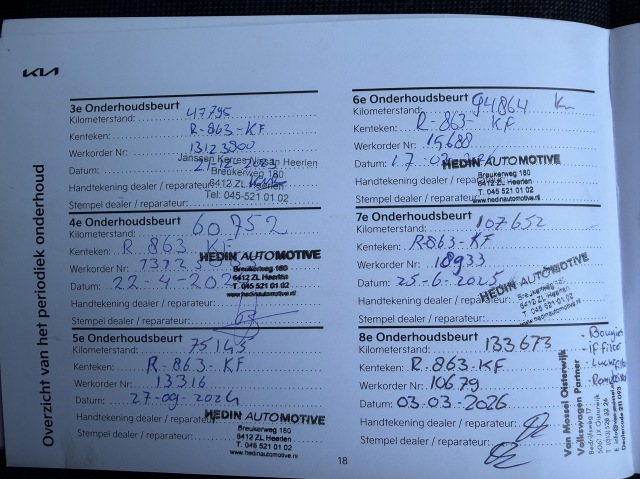 KIA
Overzicht van het periodiek onderhoud
3e Onderhoudsbeurt
Kilometerstand: 47795
Kenteken: R-863-KF
Werkorder Nr:
Datum: 21-12-2023
Handtekening dealer / reparateur:
Stempel dealer / reparateur:
Janssen Kerres Nissan Heerlen
Breukerweg 180
6412 ZL Heerlen
Tel: 045-521 01 02
4e Onderhoudsbeurt
Kilometerstand: 60.752
Kenteken: R 863 KF
Werkorder Nr:
Datum: 22-4-202
Handtekening dealer / reparateur:
Stempel dealer / reparateur:
HEDIN AUTOMOTIVE
Breukerweg 180
6412 ZL Heerlen
T. 045 521 01 02
www.hedinautomotive.nl
5e Onderhoudsbeurt
Kilometerstand: 75143
Kenteken: R-863-KF
Werkorder Nr: 13316
Datum: 27-09-2024
Handtekening dealer / reparateur:
Stempel dealer / reparateur:
HEDIN AUTOMOTIVE
Breukerweg 180
6412 ZL Heerlen
T. 045 521 01 02
www.hedinautomotive.nl
6e Onderhoudsbeurt
Kilometerstand: 94864 Km
Kenteken: R-863-KF
Werkorder Nr: 15688
Datum: 17-02
Handtekening dealer / reparateur:
Stempel dealer / reparateur:
HEDIN AUTOMOTIVE
Breukerweg 180
6412 ZL Heerlen
T. 045 521 01 02
www.hedinautomotive.nl
7e Onderhoudsbeurt
Kilometerstand: 107.652
Kenteken: R-863-KF
Werkorder Nr: 18933
Datum: 25-6-2025
Handtekening dealer / reparateur:
Stempel dealer / reparateur:
HEDIN AUTOMOTIVE
Breukerweg 180
6412 ZL Heerlen
T. 045 521 01 02
www.hedinautomotive.nl
8e Onderhoudsbeurt
Kilometerstand: 133.673
Kenteken: R-863-KF
Werkorder Nr: 10679
Datum: 03-03-2026
Handtekening dealer / reparateur:
Stempel dealer / reparateur:
- Bougies
Van Mossel Oisterwijk
Volkswagen Partner
18